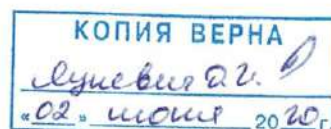 КОПИЯ ВЕРНА
Луневич О.И.
«02» июня 2020г.